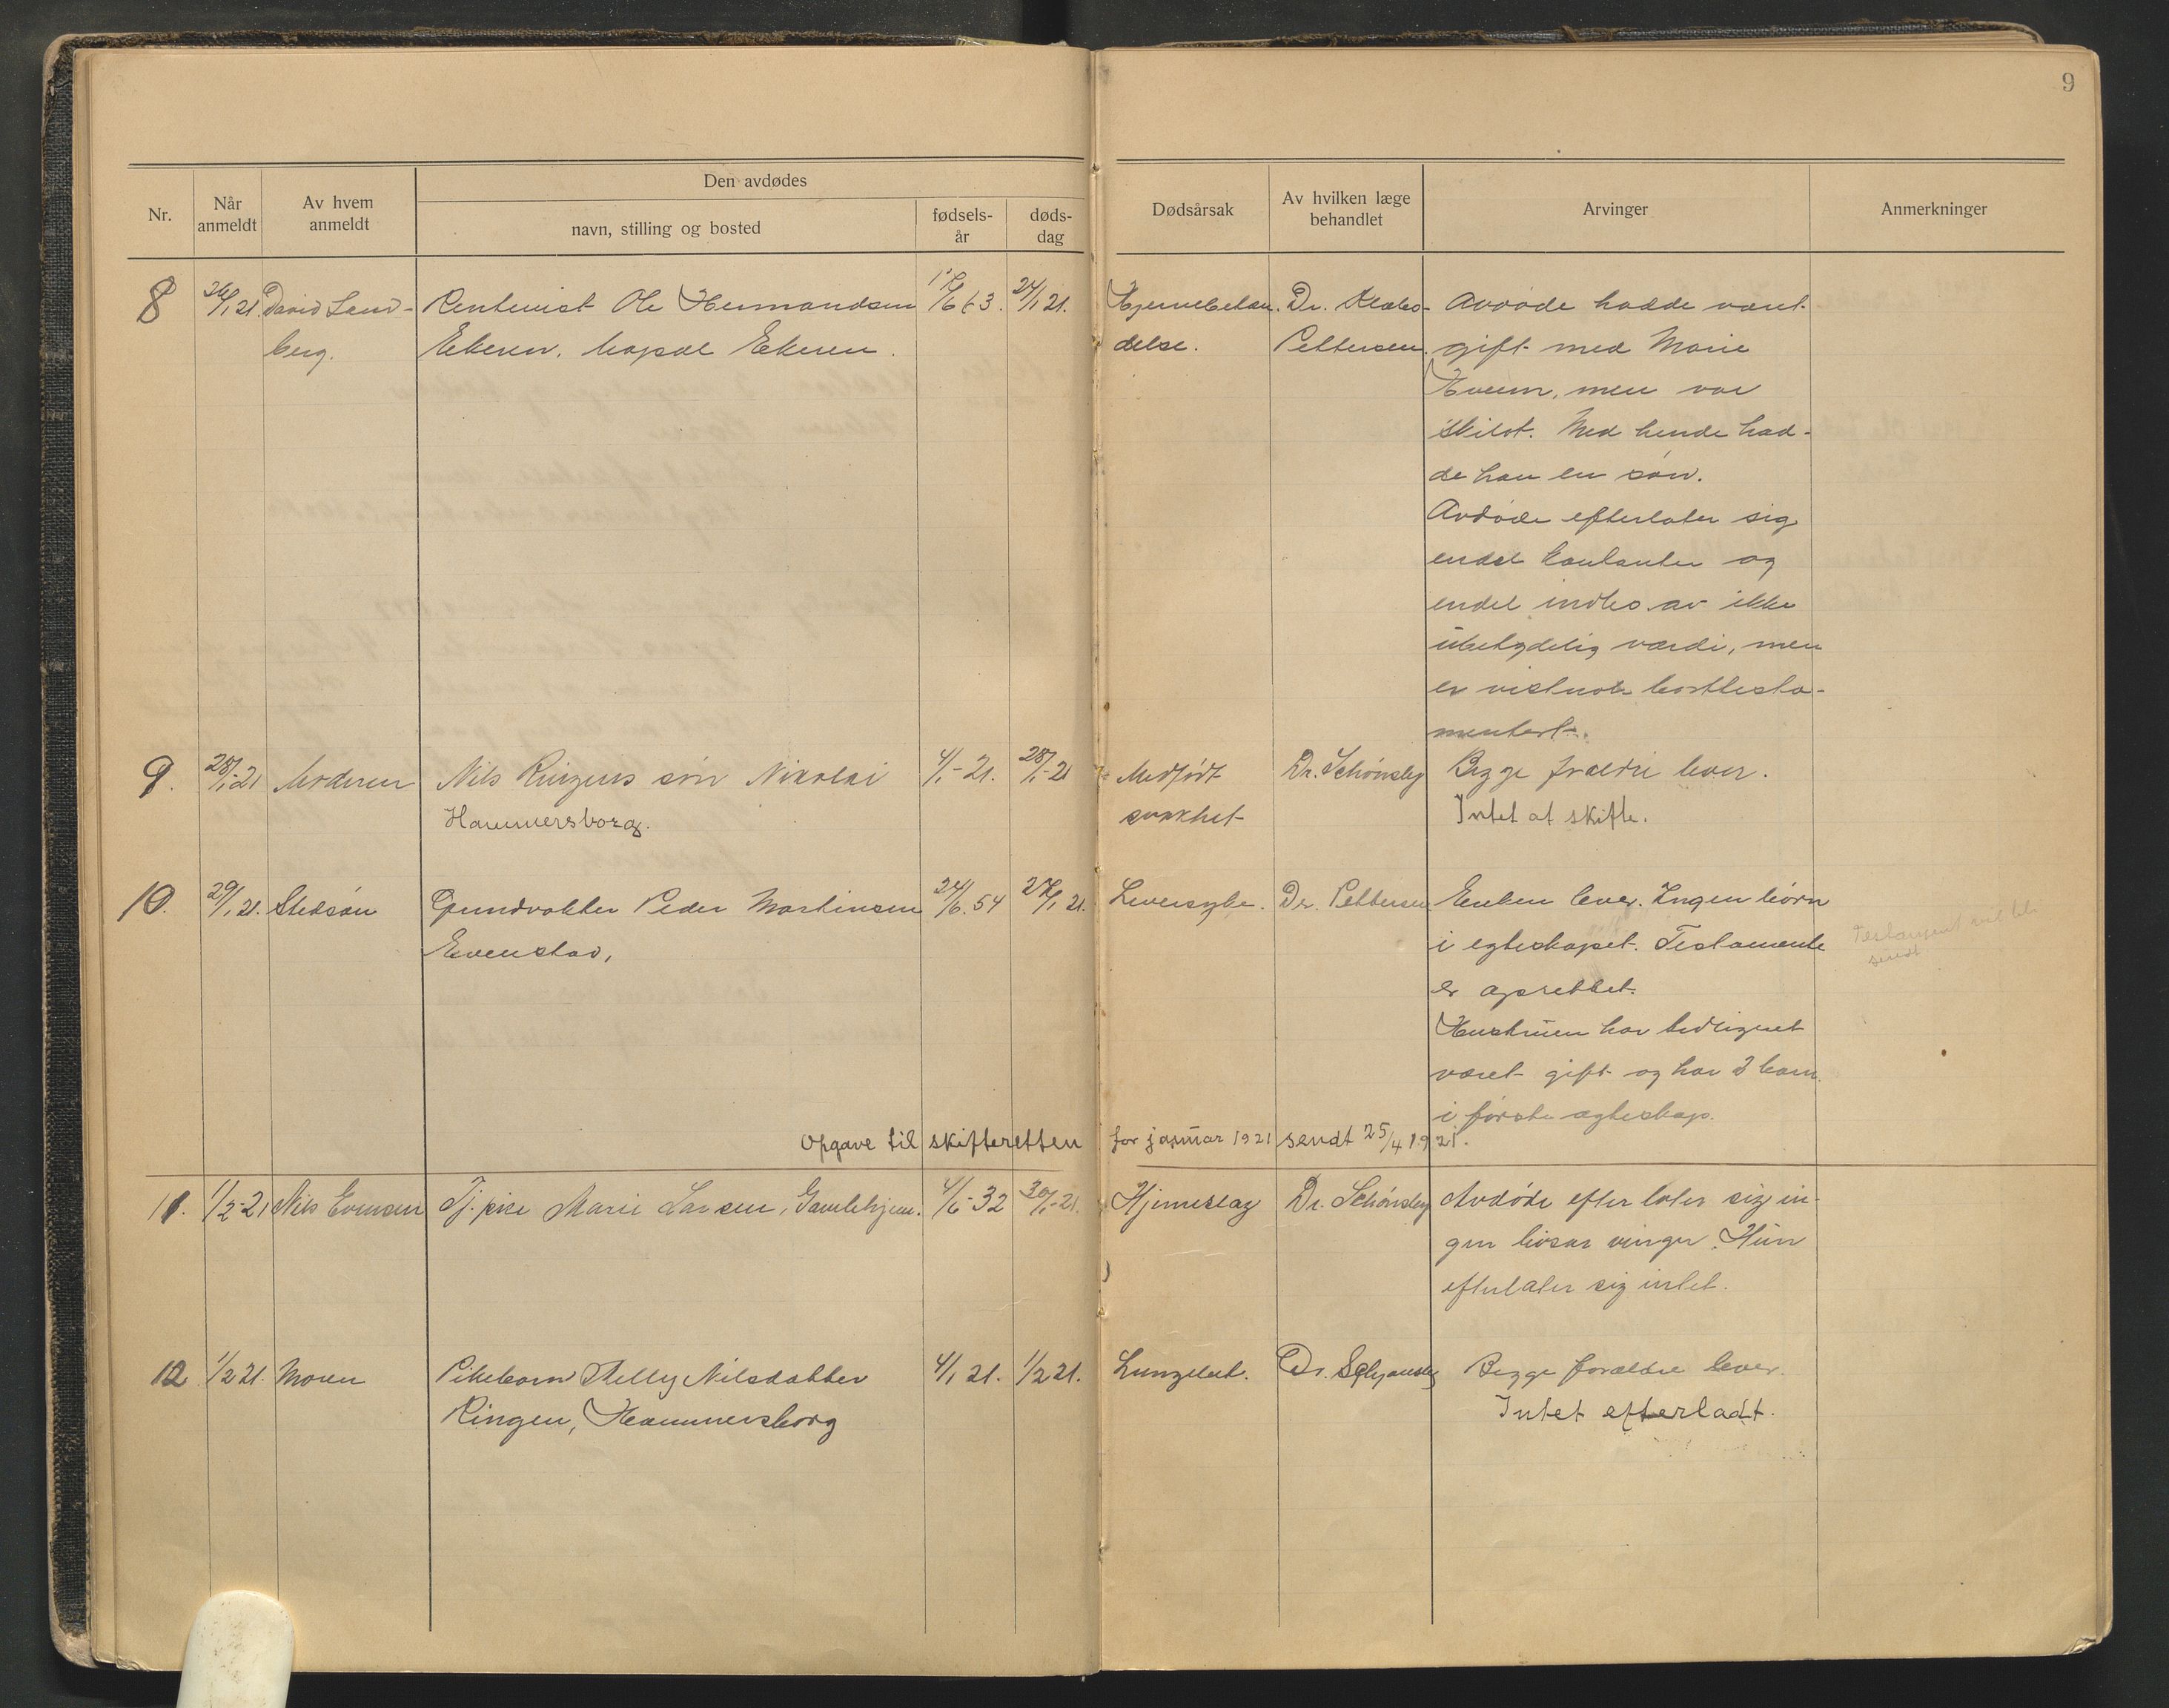 9
Nr.
Når anmeldt
Av hvem anmeldt
Den avdødes
navn, stilling og bosted
fødsels-år
døds-dag
Dødsårsak
Av hvilken læge behandlet
Arvinger
Anmerkninger
8 26/1 21. David Sand- Rentenist Ole Hermandsen 63. 24/1 21. Hjernebetæn- Dr. Klabo- Avdøde hadde været
berg. Ekeren, Kapal Ekeren. delse. Pettersen. gift med Marie
Kveum, men var
skilt. Med hende had-
de han en søn.
Avdøde efterlater sig
endel kontanter og
endel indbo av ikke
ubetydelig værdi, men
er vistnok borttesta-
mentert.
9. 28/1-21 Moderen Nils Ringens søn Nikolai 4/1-21. 28/1-21 Medfødt Dr. Schønsby Begge forældre lever.
Hammersborg. svakhet Intet at skifte.
10. 29/1 21. Stedsøn Grundvokter Peder Martinsen 24/6. 54 27/1 21. Leversyke. Dr. Pettersen Enken lever. Ingen børn
Evenstad, i egteskapet. Testamente Testament vil bli
er oprettet. sendt
Hustruen har tidligere
været gift og har 3 barn
i første egteskap.
Opgave til skifteretten for januar 1921 sendt 25/4 1921.
11. 1/2-21 Nils Evensen Tj. pike Marie Larsen, Gamlehjem. 4/6-32 30/1-21. Hjerneslag Dr. Schønsby Avdøde efterlater sig in-
gen livsarvinger. Hun
efterlater sig intet.
12 1/2 21. Moren Pikebarn Nelly Nilsdatter 4/1 21. 1/2 21. Lungebet. Dr. Schønsby Begge forældre lever.
Ringen, Hammersborg Intet efterladt.